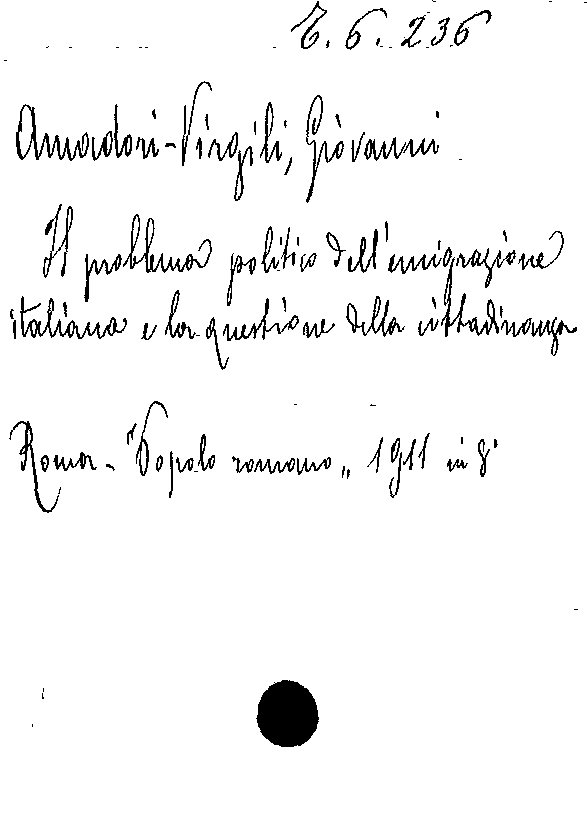 C. 6. 236
Amadori-Virgili, Giovanni
Il problema politico dell'emigrazione
italiana e la questione della cittadinanza
Roma - "Popolo romano„ 1911 in 8°